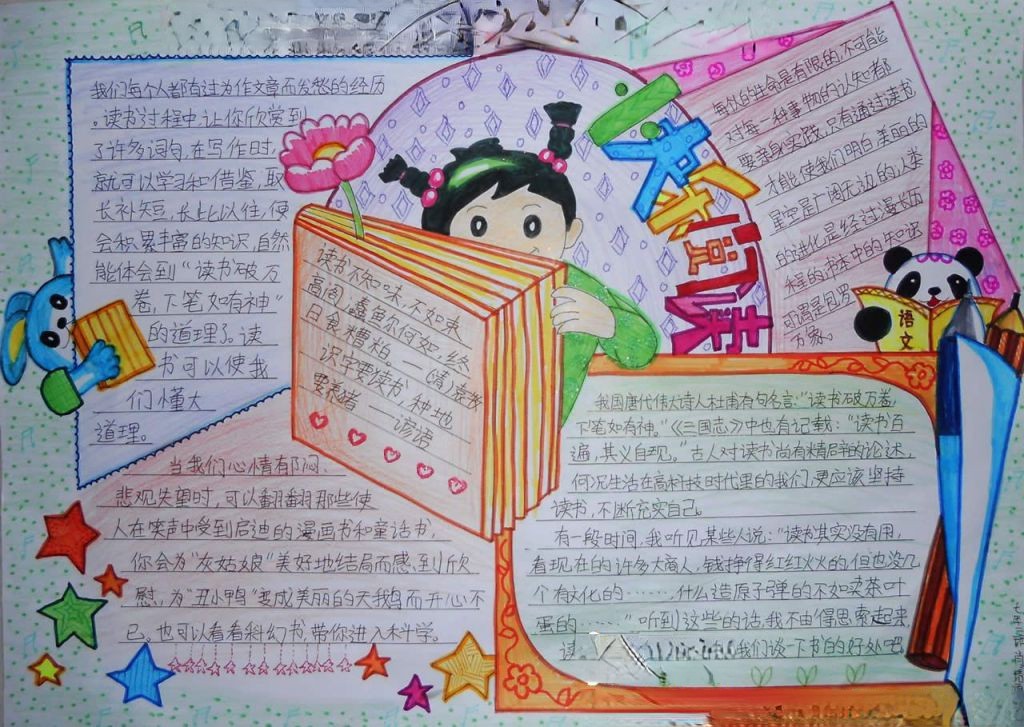 我们每个人都有过为作文章而发愁的经历
。读书过程中,让你欣赏到
了许多词句,在写作时,
就可以学习和借鉴,取
长补短,长此以往,便
会积累丰富的知识,自然
能体会到“读书破万
卷,下笔如有神”
的道理了。读
书可以使我
们懂大
道理。
读书不知味,不如束
高阁;蠹鱼尔何如,终
日食糟粕——(清)袁牧
识字要读书,种地
要养猪——谚语
阅读
每个人的生命是有限的,不可能
对每一种事物的认知都
要亲身实践,只有通过读书
才能使我们明白美丽的
星空是广阔无边的,人类
的进化是经过漫长历
程的,书本中的知识
可谓是包罗
万象。
语文
当我们心情郁闷、
悲观失望时,可以翻翻那些使
人在笑声中受到启迪的漫画书和童话书,
你会为“灰姑娘”美好地结局而感到欣
慰,为“丑小鸭”变成美丽的天鹅而开心不
已。也可以看看科幻书,带你进入科学。
我国唐代伟大诗人杜甫有句名言:“读书破万卷,
下笔如有神。”《三国志》中也有记载:“读书百
遍,其义自现。”古人对读书尚有精辟的论述,
何况生活在高科技时代里的我们,更应该坚持
读书,不断充实自己。
有一段时间,我听见某些人说:“读书其实没有用,
看现在的许多大商人,钱挣得红红火火的,但也没几
个有文化的……,什么造原子弹的不如卖茶叶
蛋的……”听到这些的话,我不由得思索起来,
我们谈一下书的好处吧